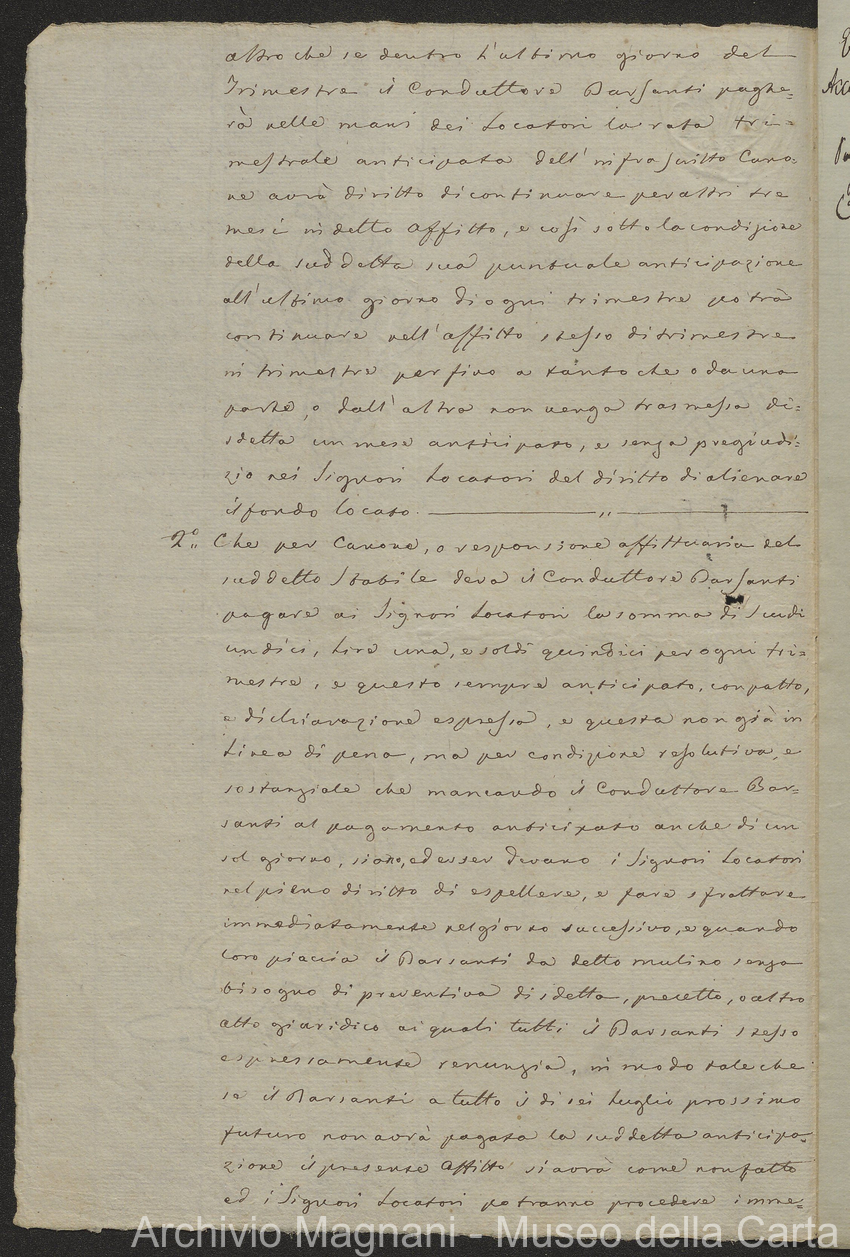 altro che se dentro l'ultimo giorno del
Trimestre il Conduttore Barsanti paghe=
rà nelle mani dei Locatori la rata tri=
mestrale anticipata dell'infrascritto Cano=
ne avrà diritto di continuare per altri tre
mesi in detto affitto, e così sotto la condizione
della suddetta sua puntuale anticipazione
all'ultimo giorno di ogni trimestre potrà
continuare nell'affitto stesso di trimestre
in trimestre per fino a tanto che o da una
parte, o dall'altra non venga trasmessa di=
sdetta un mese anticipato, e senza pregiudi=
zio nei Signori Locatori del diritto di alienare
il fondo locato. ——— „ ———
2°„ Che per Canone, o responsione affittuaria del
suddetto Stabile deva il Conduttore Barsanti
pagare ai Signori Locatori la somma di Scudi
undici, Lire una, e soldi quindici per ogni tri=
mestre, e questo sempre anticipato, con patto,
e dichiarazione espressa, e questa non già in
linea di pena, ma per condizione resolutiva, e
sostanziale che mancando il Conduttore Bar=
santi al pagamento anticipato anche di un
sol giorno, siano, ed esser devano i Signori Locatori
nel pieno diritto di espellere, e fare sfrattare
immediatamente nel giorno successivo, e quando
loro piaccia il Barsanti da detto mulino senza
bisogno di preventiva disdetta, precetto, o altro
atto giuridico ai quali tutti il Barsanti stesso
espressamente renunzia, in modo tale che
se il Barsanti a tutto il dì sei Luglio prossimo
futuro non avrà pagata la suddetta anticipa=
zione il presente Affitto si avrà come non fatto
ed i Signori Locatori potranno procedere imme=
Archivio Magnani - Museo della Carta